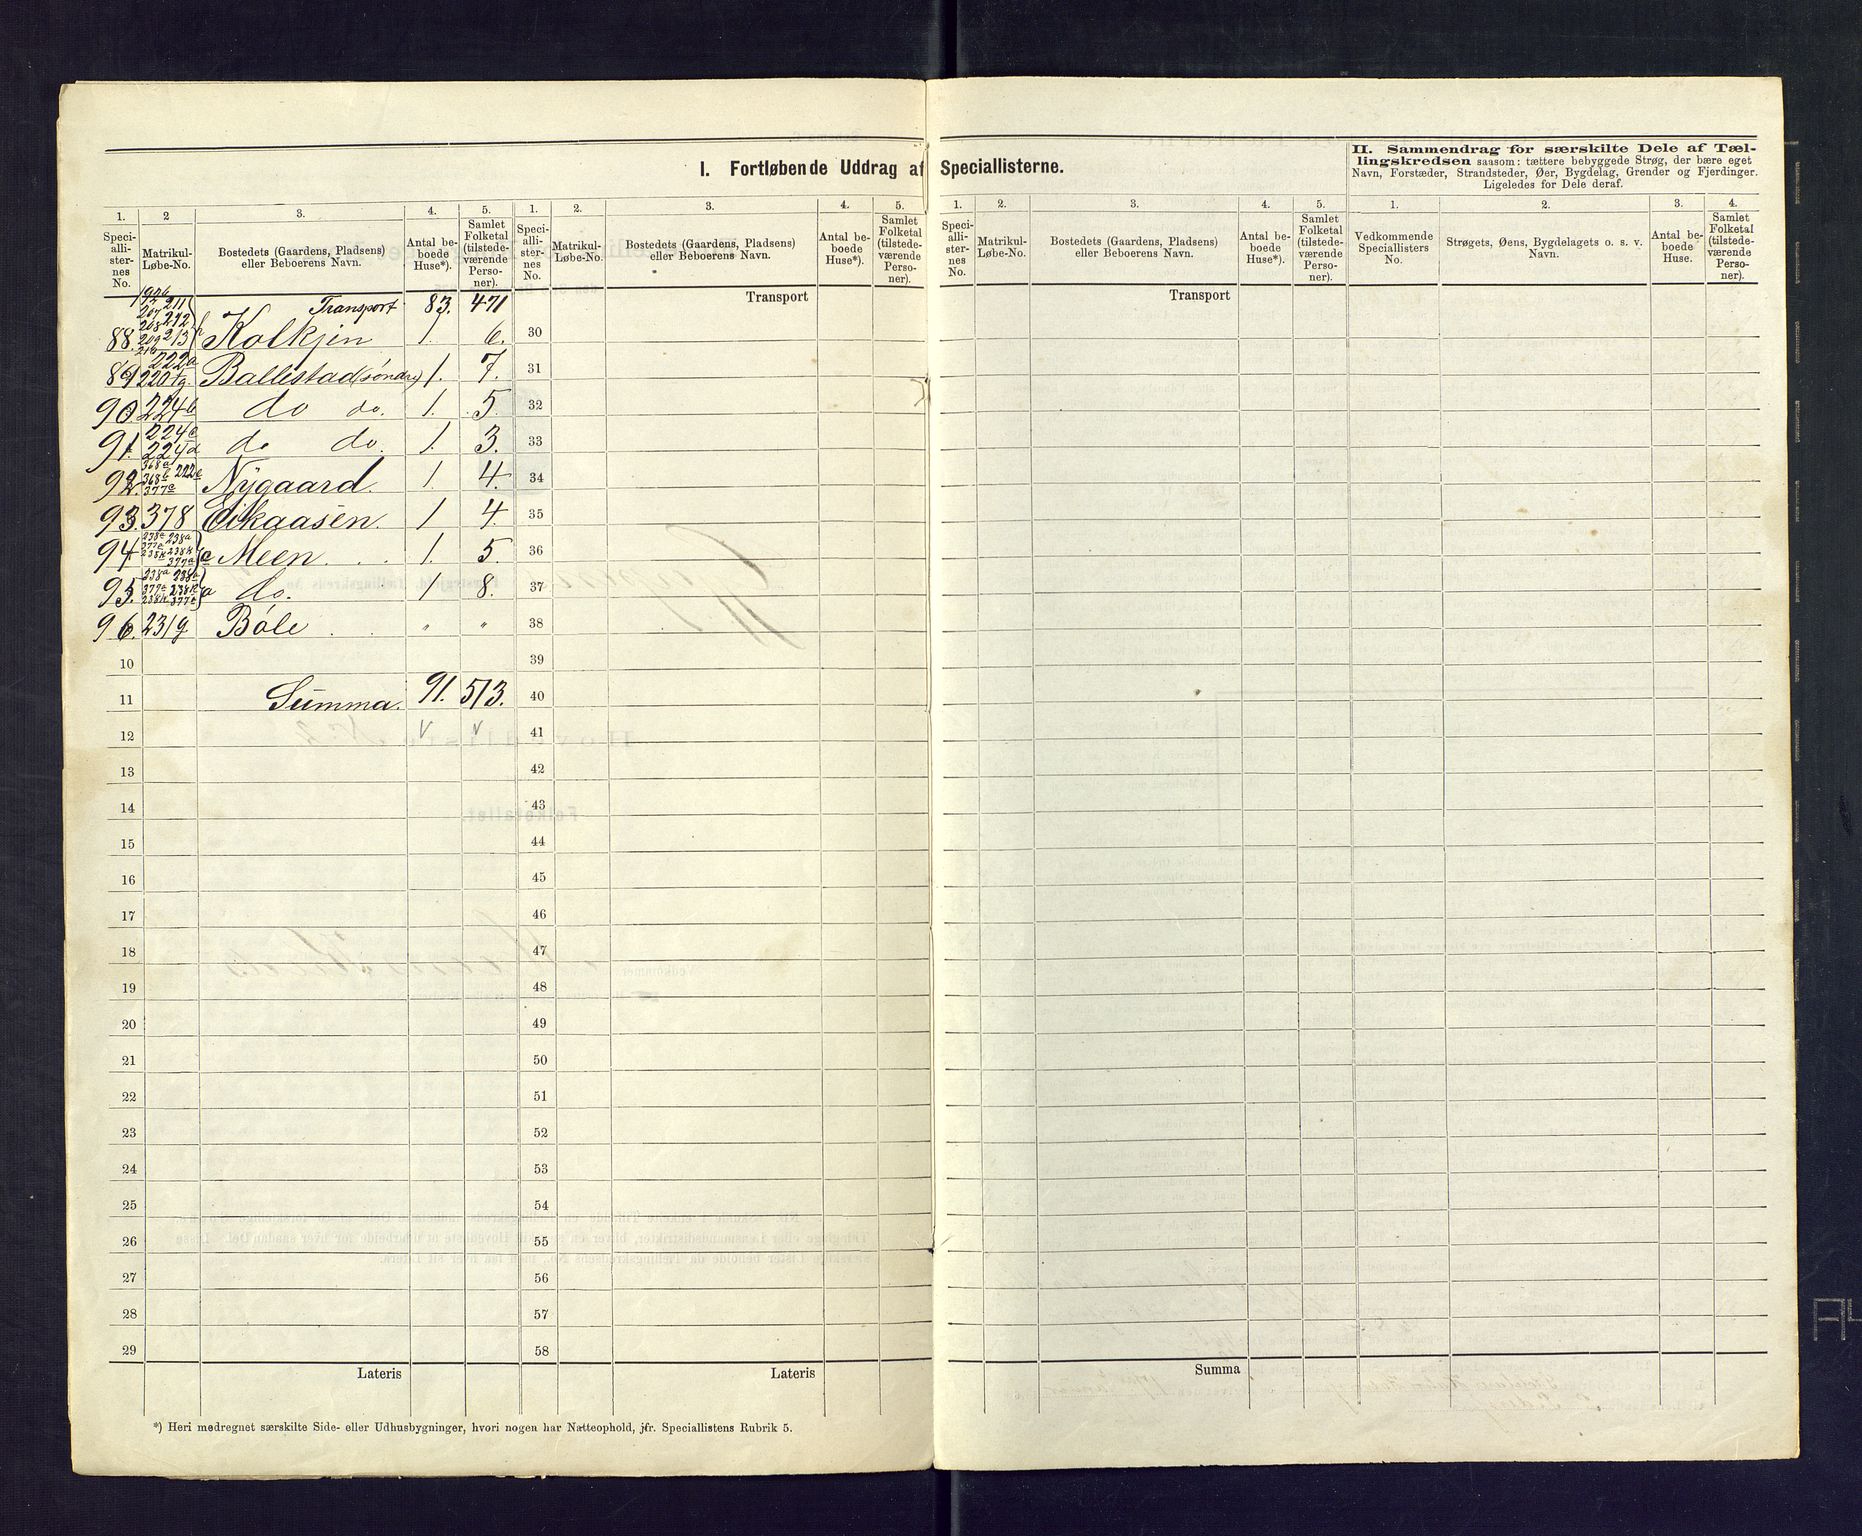 I. Fortløbende Uddrag af Speciallisterne.
II. Sammendrag for særskilte Dele af Tæl-
lingskredsen saasom: tættere bebyggede Strøg, der bære eget
Navn, Forstæder, Strandsteder, Øer, Bygdelag, Grender og Fjerdinger.
Ligeledes for Dele deraf.
1. 2 3. 4. 5. 1. 2. 3. 4. 5. 1. 2. 3. 4. 5. 1. 2. 3. 4.
Speci-alli-ster-nes No. Matrikul-Løbe-No. Bostedets (Gaardens, Pladsens) eller Beboerens Navn. Antal be-boede Huse*). Samlet Folketal (tilstede-værende Perso-ner).
Speci-alli-ster-nes No. Matrikul-Løbe-No. Bostedets (Gaardens, Pladsens) eller Beboerens Navn. Antal be-boede Huse*). Samlet Folketal (tilstede-værende Perso-ner).
Speci-alli-ster-nes No. Matrikul-Løbe-No. Bostedets (Gaardens, Pladsens) eller Beboerens Navn. Antal be-boede Huse*). Samlet Folketal (tilstede-værende Perso-ner).
Vedkommende Speciallisters No. Strøgets, Øens, Bygdelagets o. s. v. Navn. Antal be-boede Huse. Samlet Folketal (tilstede-værende Perso-ner).
Transport 83. 471 Transport Transport
88. Kolkjen 1. 6. 30
89 222a 220 Ballestad (söndre) 1. 7. 31
90. 224b do do. 1. 5. 32
91. 224c 224d do do. 1. 3. 33
92. 368a 368b 222e 377c Nÿgaard. 1. 4. 34
93. 378 Eikaasen. 1 4. 35
94 238a 238k 377a Meen . . . 1. 5. 36
95. 238a 377a 238k do. 1 8. 37
96. 231g Bøle . . . " " 38
10 39
11 Summa. 91. 513. 40
12 v v 41
13 42
14 43
15 44
16 45
17 46
18 47
19 48
20 49
21 50
22 51
23 52
24 53
25 54
26 55
27 56
28 57
29 58
Lateris Lateris Summa
*) Heri medregnet særskilte Side- eller Udhusbygninger, hvori nogen har Natteophold, jfr. Speciallistens Rubrik 5.